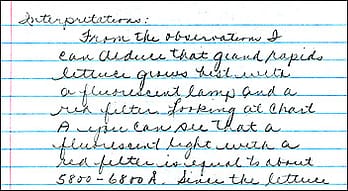 Interpretations:
From the observations I
can deduce that grand rapids
lettuce grows best with
a fluorescent lamp and a
red filter. Looking at Chart
A you can see that a
fluorescent light with a
red filter is equal to about
5800-6800Å. Since the lettuce